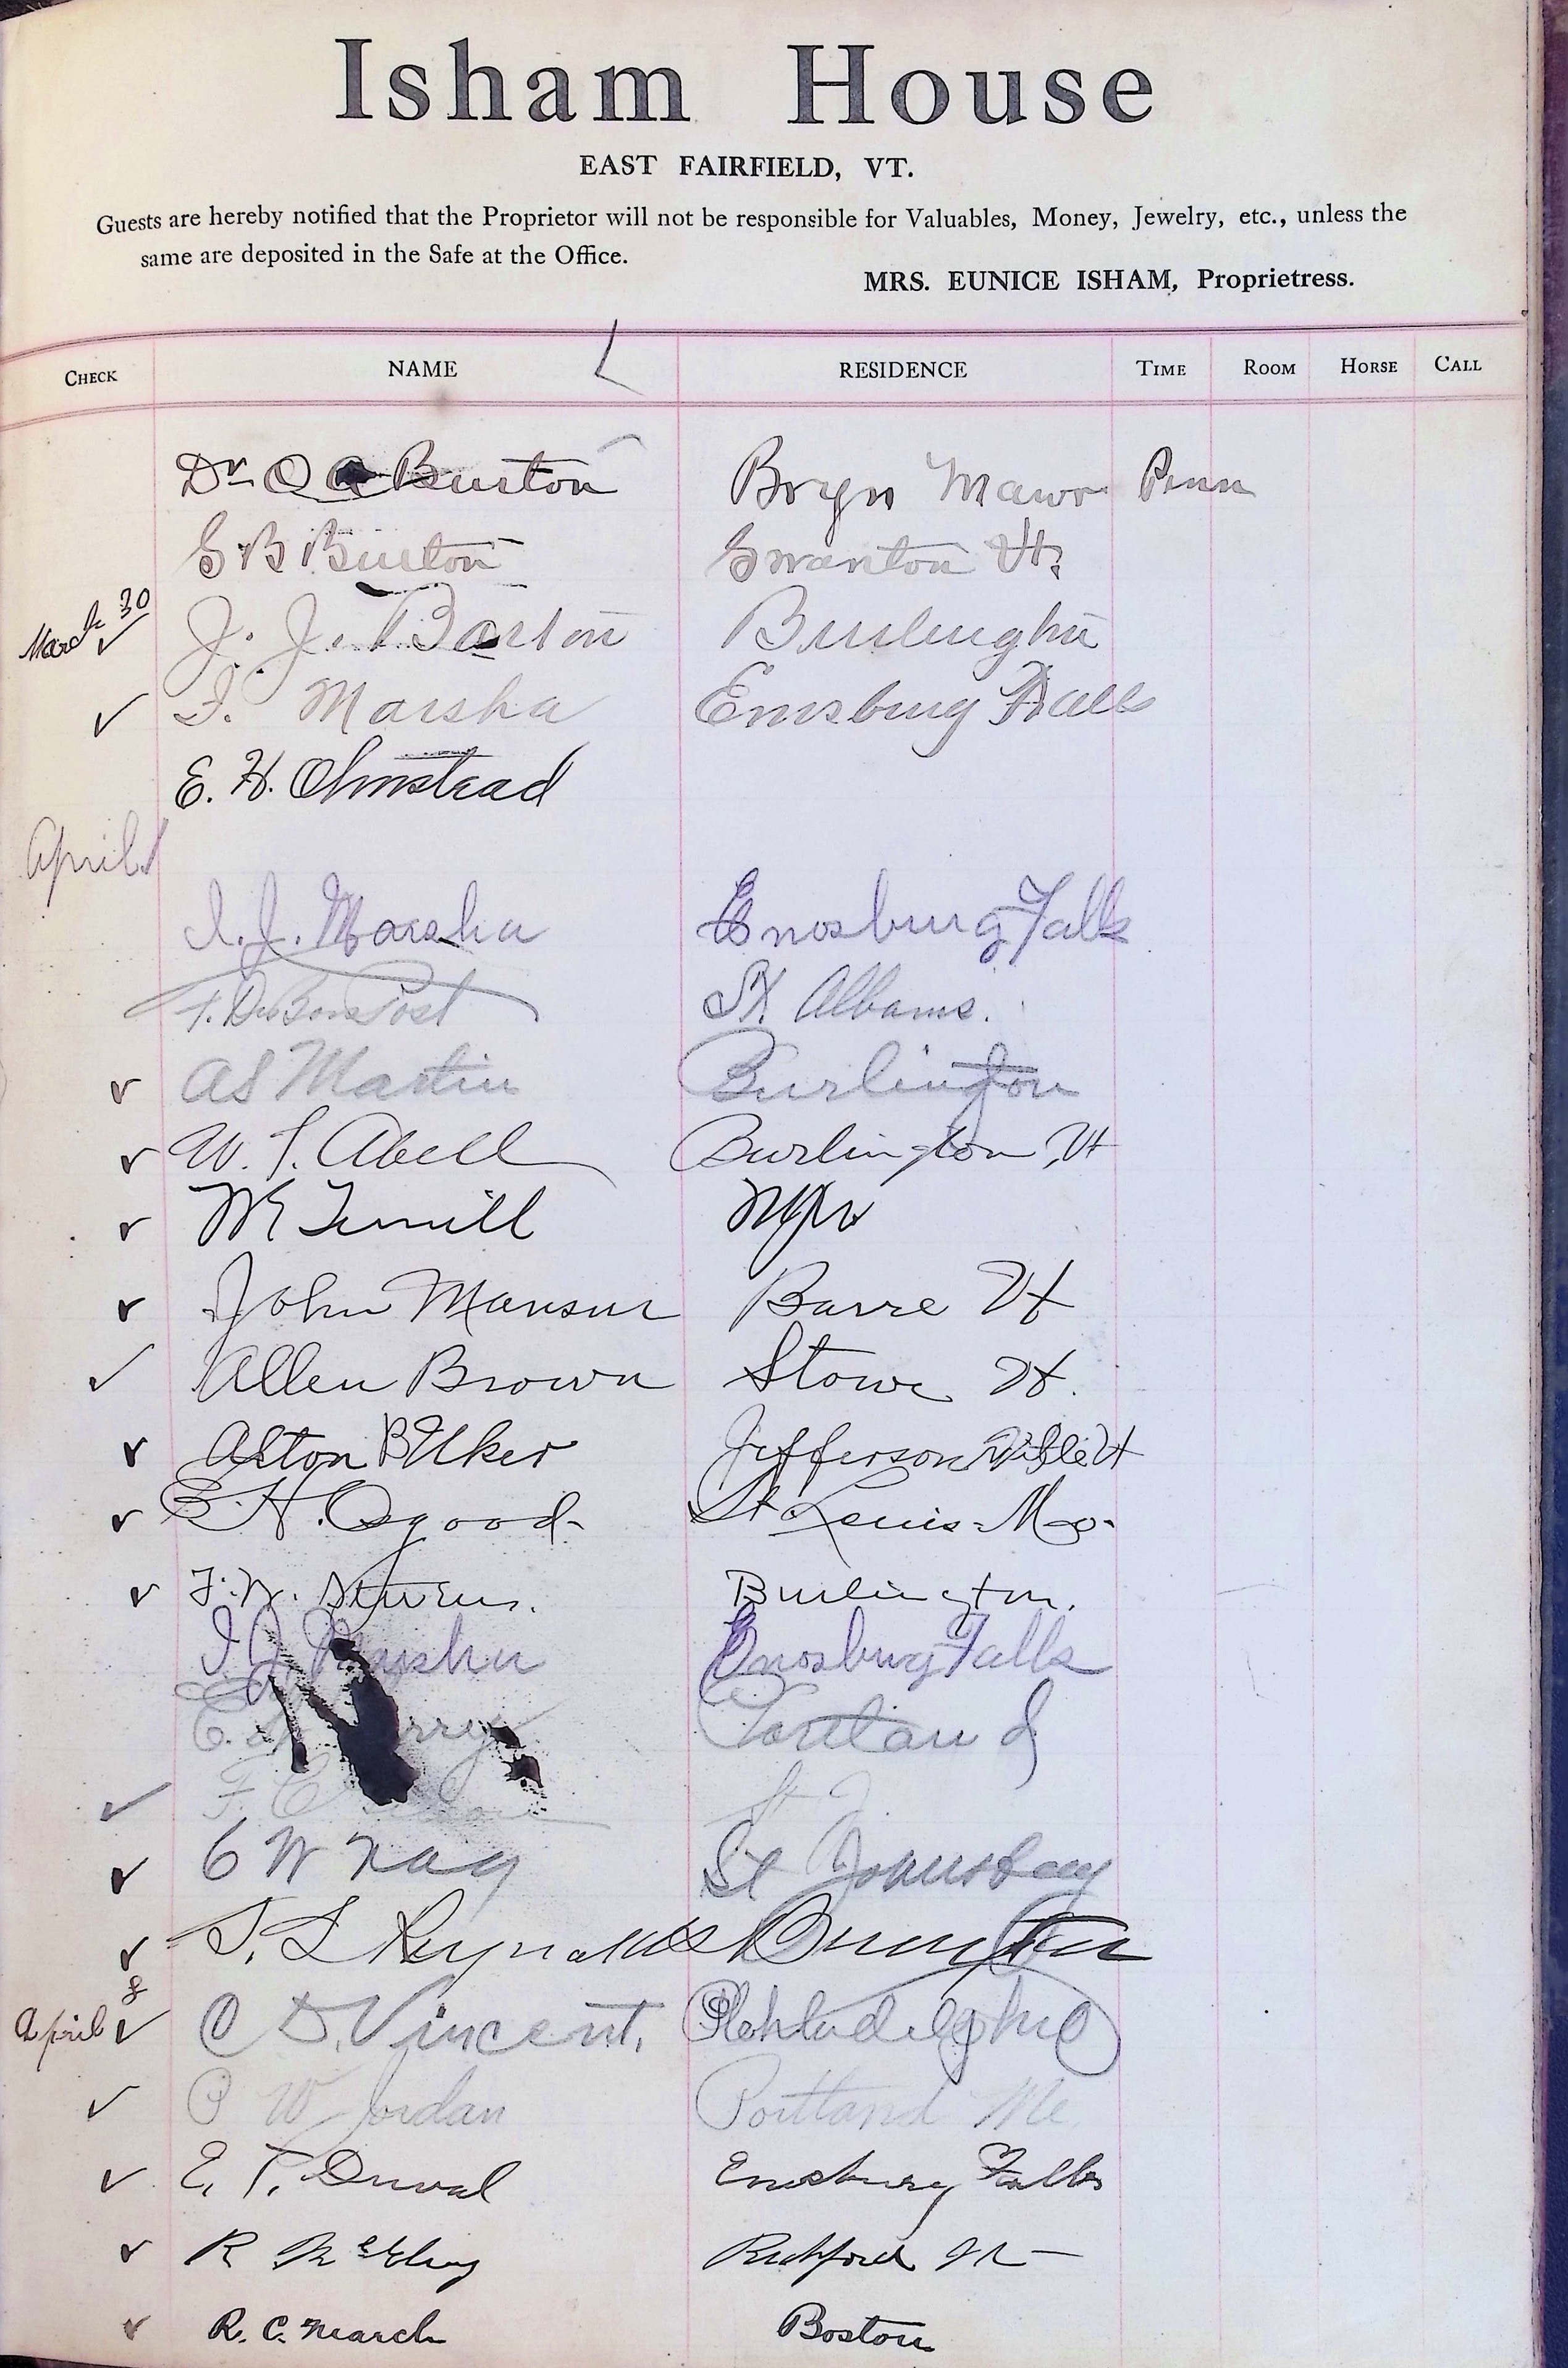 Isham House
EAST FAIRFIELD, VT.
Guests are hereby notified that the Proprietor will not be responsible for Valuables, Money, Jewelry, etc., unless the
same are deposited in the Safe at the Office.
MRS. EUNICE ISHAM, Proprietress.
CHECK NAME RESIDENCE TIME ROOM HORSE CALL
Dr O Burton Bryn Mawr Penn
G B Burton Swanton Vt.
March 30 ✓ J. J. Barton Burlington
✓ I. Marsha Enosburg Falls
E. H. Olmstead
April 1
I. J. Marsha Enosburg Falls
Post St Albans.
✓ A S Martin Burlington
✓ W. T. Abell Burlington, Vt
✓ W E Terrill
✓ John Mansur Barre Vt
✓ Allen Brown Stowe Vt.
✓ Alton B Uker Jeffersonville Vt
✓ E. H. Osgood St Louis Mo.
✓ F. W. Stevens. Burlington.
I J Marsha Enosburg Falls
C. Portland
✓ F. C St J.
✓ C W Kay St Johnsbury
✓ S. L Reynolds Burlington
April 8 ✓ C D. Vincent, Philadelphia
✓ P W Jordan Portland Me
✓ E. T. Duval Enosburg Falls
✓ R Richford Vt
✓ R. C. March Boston